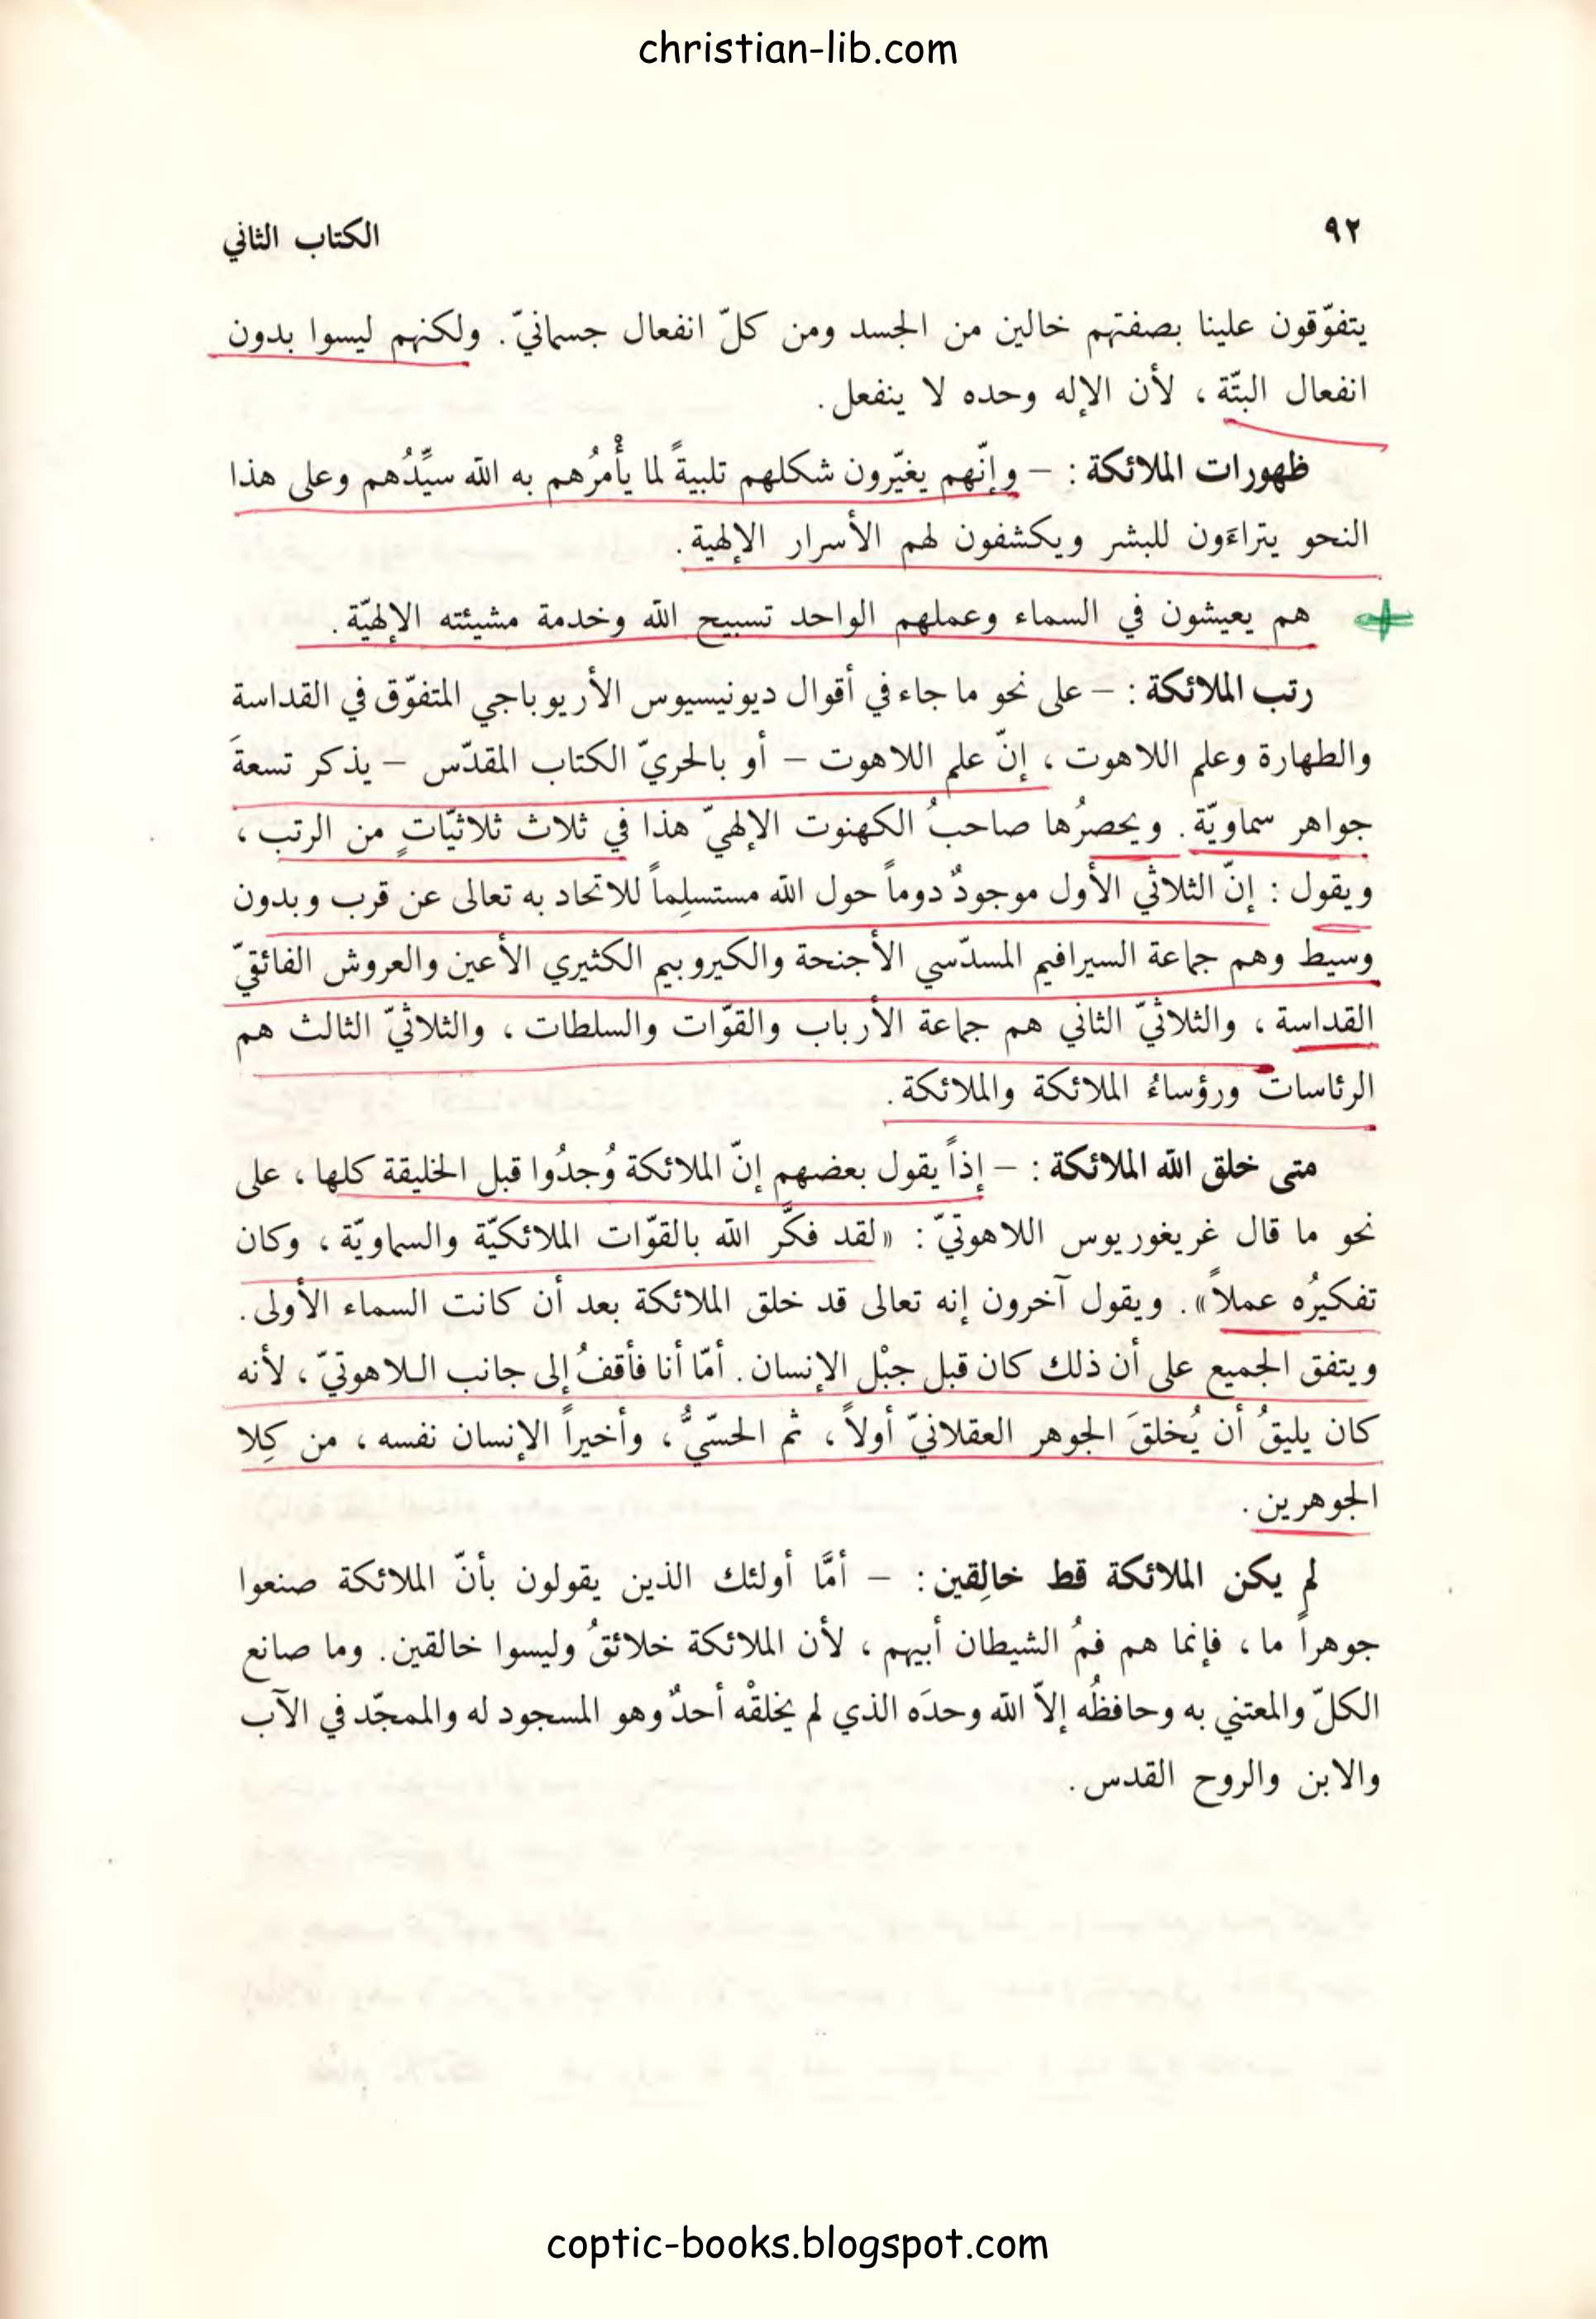 christian-lib.com
٩٢
الكتاب الثاني
يتفوّقون علينا بصفتهم خالين من الجسد ومن كلّ انفعال جسمانيّ. ولكنهم ليسوا بدون
انفعال البتّة ، لأن الإله وحده لا ينفعل.
ظهورات الملائكة : – وإنّهم يغيّرون شكلهم تلبيةً لما يأْمرُهم به الله سيِّدُهم وعلى هذا
النحو يتراءَون للبشر ويكشفون لهم الأسرار الإلهية.
هم يعيشون في السماء وعملهم الواحد تسبيح الله وخدمة مشيئته الإلهيّة.
رتب الملائكة : – على نحو ما جاء في أقوال ديونيسيوس الأريوباجي المتفوّق في القداسة
والطهارة وعلم اللاهوت ، إنّ علم اللاهوت – أو بالحريّ الكتاب المقدّس – يذكر تسعةَ
جواهر سماويّة. ويحصرُها صاحبُ الكهنوت الإلهيّ هذا في ثلاث ثلاثيّاتٍ من الرتب ،
ويقول : إنّ الثلاثي الأول موجودٌ دوماً حول الله مستسلِماً للاتحاد به تعالى عن قرب وبدون
وسيط وهم جماعة السيرافيم المسدّسي الأجنحة والكيروبيم الكثيري الأعين والعروش الفائقيّ
القداسة ، والثلاثيّ الثاني هم جماعة الأرباب والقوّات والسلطات ، والثلاثيّ الثالث هم
الرئاسات ورؤساءُ الملائكة والملائكة.
متى خلق الله الملائكة : – إذاً يقول بعضهم إنّ الملائكة وُجدُوا قبل الخليقة كلها ، على
نحو ما قال غريغوريوس اللاهوتيّ : «لقد فكَّر الله بالقوّات الملائكيّة والسماويّة ، وكان
تفكيرُه عملاً». ويقول آخرون إنه تعالى قد خلق الملائكة بعد أن كانت السماء الأولى.
ويتفق الجميع على أن ذلك كان قبل جبْل الإنسان. أمّا أنا فأقفُ إلى جانب اللاهوتيّ ، لأنه
كان يليقُ أن يُخلقَ الجوهر العقلانيّ أولاً ، ثم الحسّيُّ ، وأخيراً الإنسان نفسه ، من كِلا
الجوهرين.
لم يكن الملائكة قط خالِقين : – أمَّا أولئك الذين يقولون بأنّ الملائكة صنعوا
جوهراً ما ، فإنما هم فمُ الشيطان أبيهم ، لأن الملائكة خلائقُ وليسوا خالقين. وما صانع
الكلّ والمعتني به وحافظُه إلاّ الله وحدَه الذي لم يخلقْه أحدٌ وهو المسجود له والممجّد في الآب
والابن والروح القدس.
coptic-books.blogspot.com